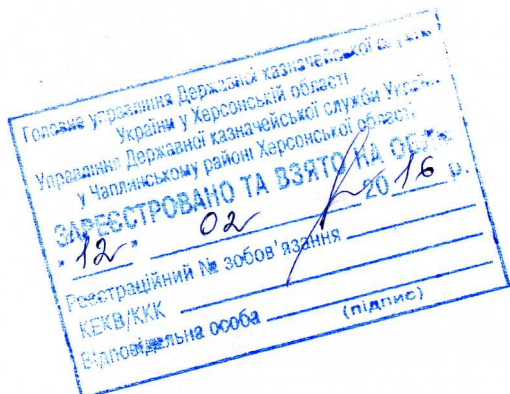 Головне управління Державної казначейської
України у Херсонській області
Управління Державної казначейської служби
у Чаплинському районі Херсонської області
ЗАРЕЄСТРОВАНО ТА ВЗЯТО НА
"12" 02 2016 р.
Реєстраційний № зобов'язання
КЕКВ/ККК
Відповідальна особа
(підпис)